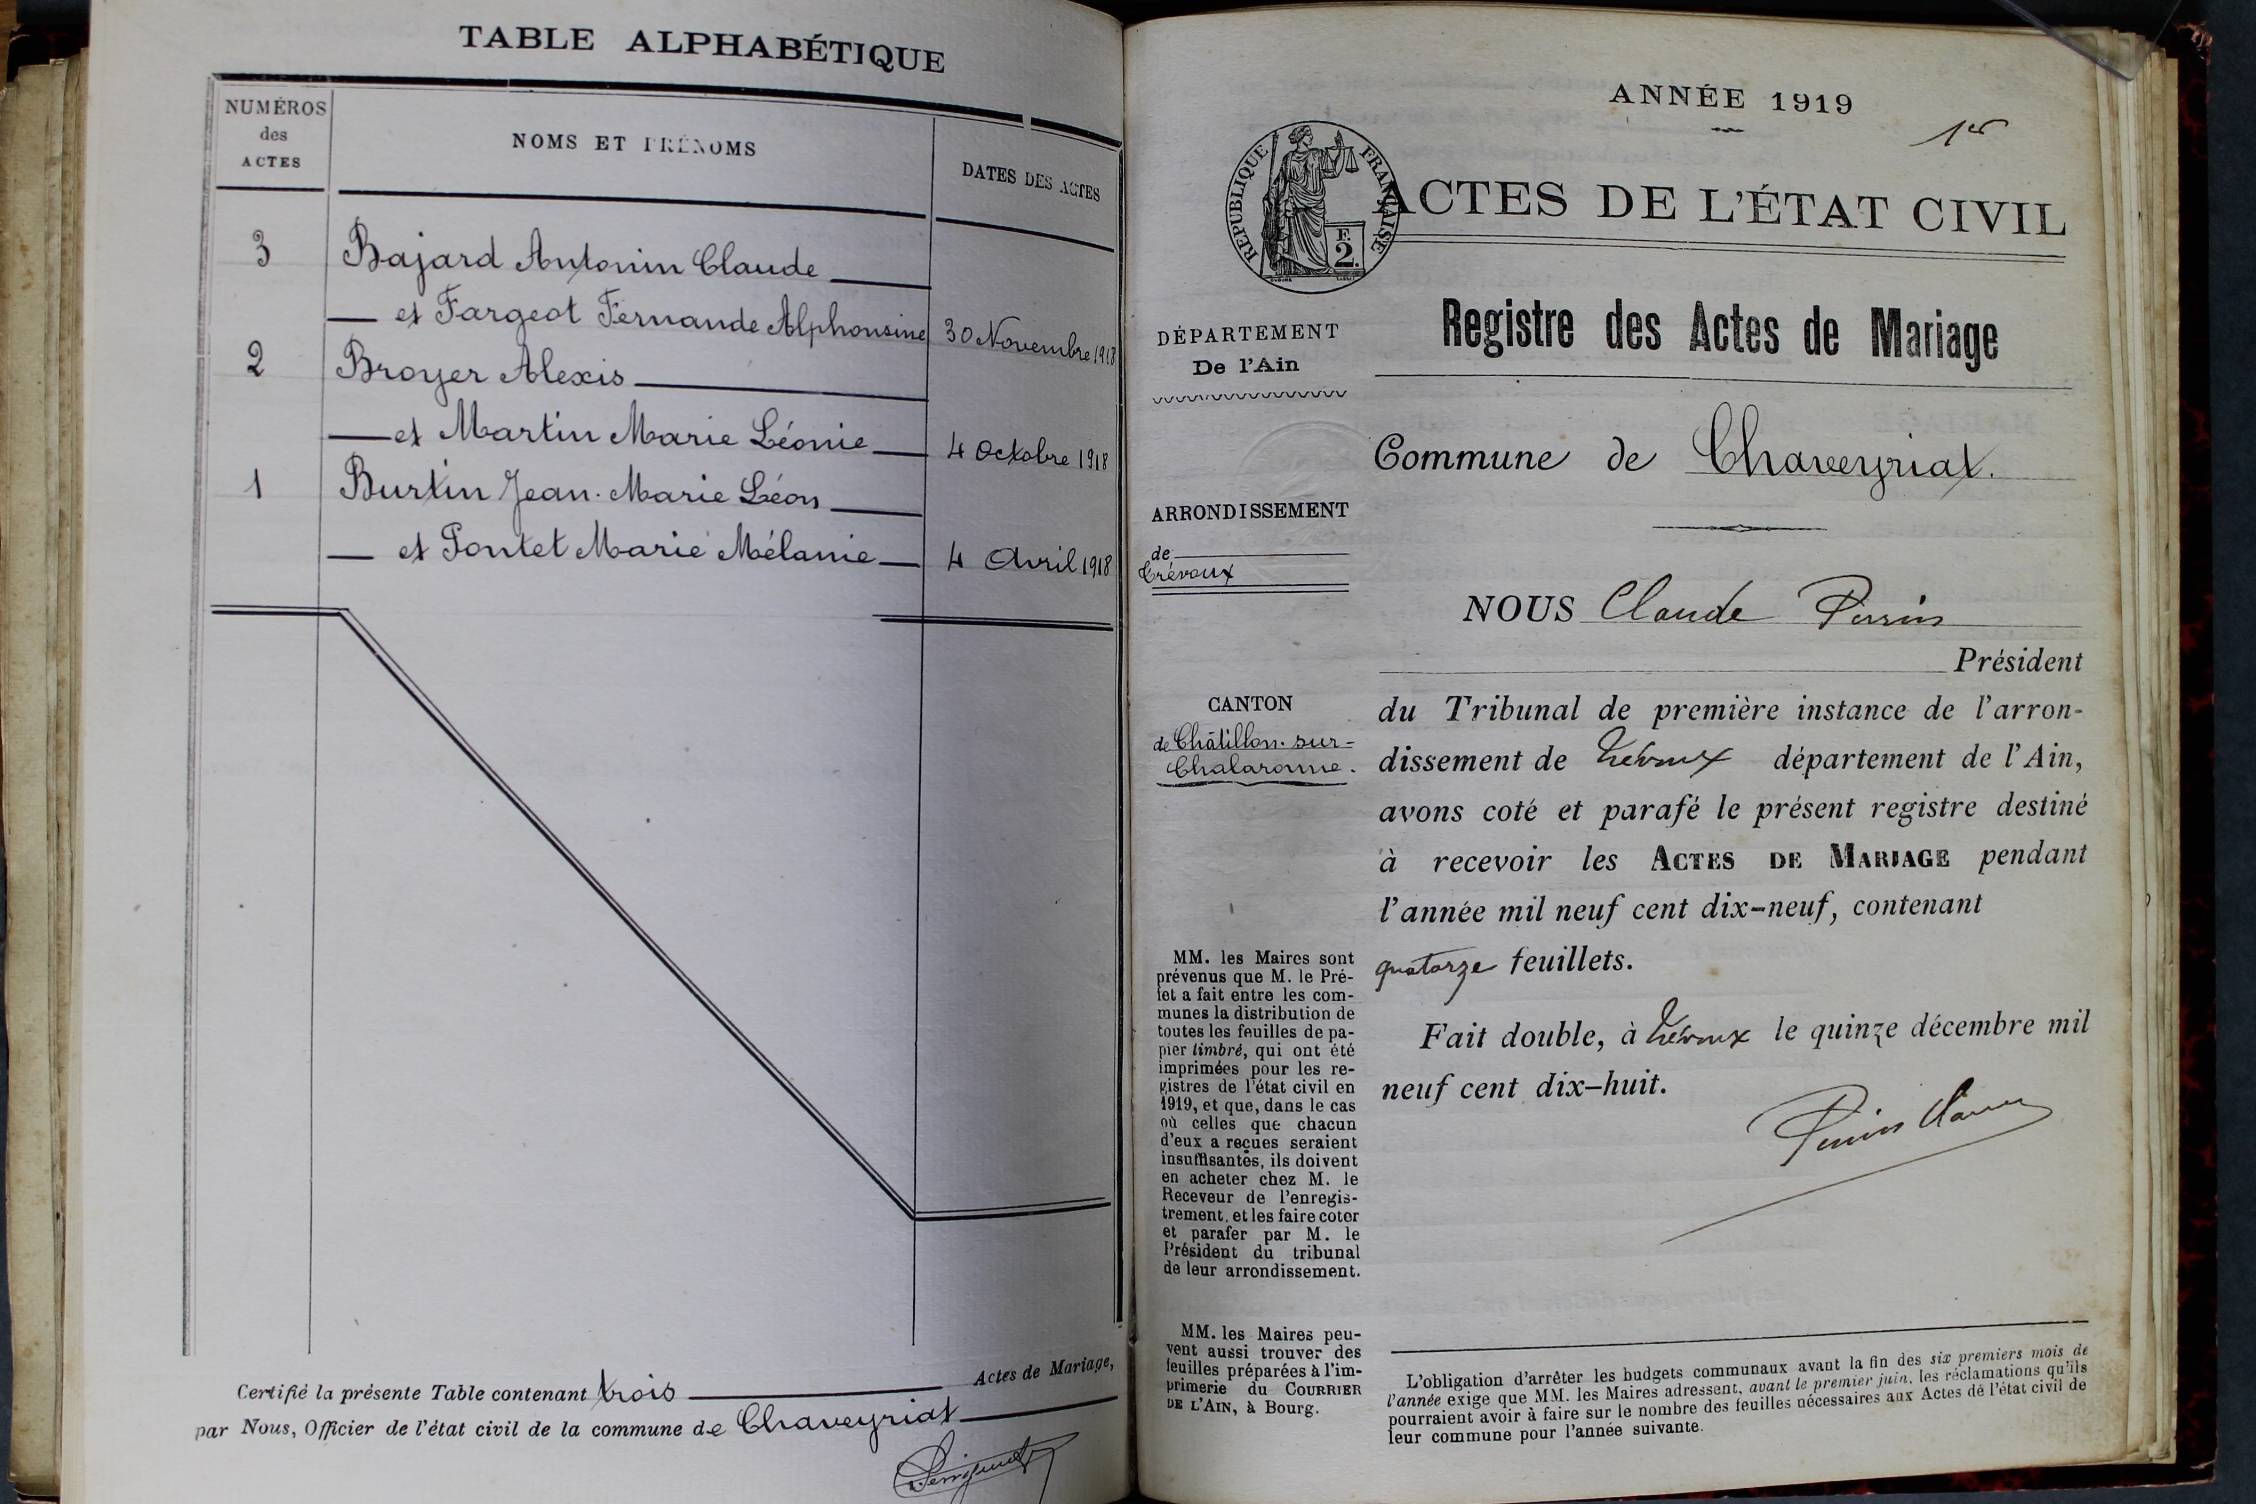 TABLE ALPHABÉTIQUE
NUMÉROS
des
ACTES
NOMS ET PRÉNOMS
DATES DES ACTES
3 Bajard Antonin Claude
et Fargeot Fernande Alphonsine 30 Novembre 1918
2 Broyer Alexis
et Martin Marie Léonie 4 Octobre 1918
1 Burtin Jean-Marie Léon
et Pontet Marie Mélanie 4 Avril 1918
Certifié la présente Table contenant trois Actes de Mariage,
par Nous, Officier de l'état civil de la commune de Chaveyriat
ANNÉE 1919
1er
RÉPUBLIQUE FRANÇAISE
F.
2.
ACTES DE L'ÉTAT CIVIL
Registre des Actes de Mariage
DÉPARTEMENT
De l'Ain
Commune de Chaveyriat.
ARRONDISSEMENT
de
Trévoux
NOUS Claude Perrin
Président
CANTON
de Châtillon-sur-
Chalaronne.
du Tribunal de première instance de l'arron-
dissement de Trévoux département de l'Ain,
avons coté et parafé le présent registre destiné
à recevoir les ACTES DE MARIAGE pendant
l'année mil neuf cent dix-neuf, contenant
quatorze feuillets.
Fait double, à Trévoux le quinze décembre mil
neuf cent dix-huit.
Perrin Claude
MM. les Maires sont
prévenus que M. le Pré-
fet a fait entre les com-
munes la distribution de
toutes les feuilles de pa-
pier timbré, qui ont été
imprimées pour les re-
gistres de l'état civil en
1919, et que, dans le cas
où celles que chacun
d'eux a reçues seraient
insuffisantes, ils doivent
en acheter chez M. le
Receveur de l'enregis-
trement, et les faire coter
et parafer par M. le
Président du tribunal
de leur arrondissement.
MM. les Maires peu-
vent aussi trouver des
feuilles préparées à l'im-
primerie du COURRIER
DE L'AIN, à Bourg.
L'obligation d'arrêter les budgets communaux avant la fin des six premiers mois de
l'année exige que MM. les Maires adressent, avant le premier juin, les réclamations qu'ils
pourraient avoir à faire sur le nombre des feuilles nécessaires aux Actes de l'état civil de
leur commune pour l'année suivante.